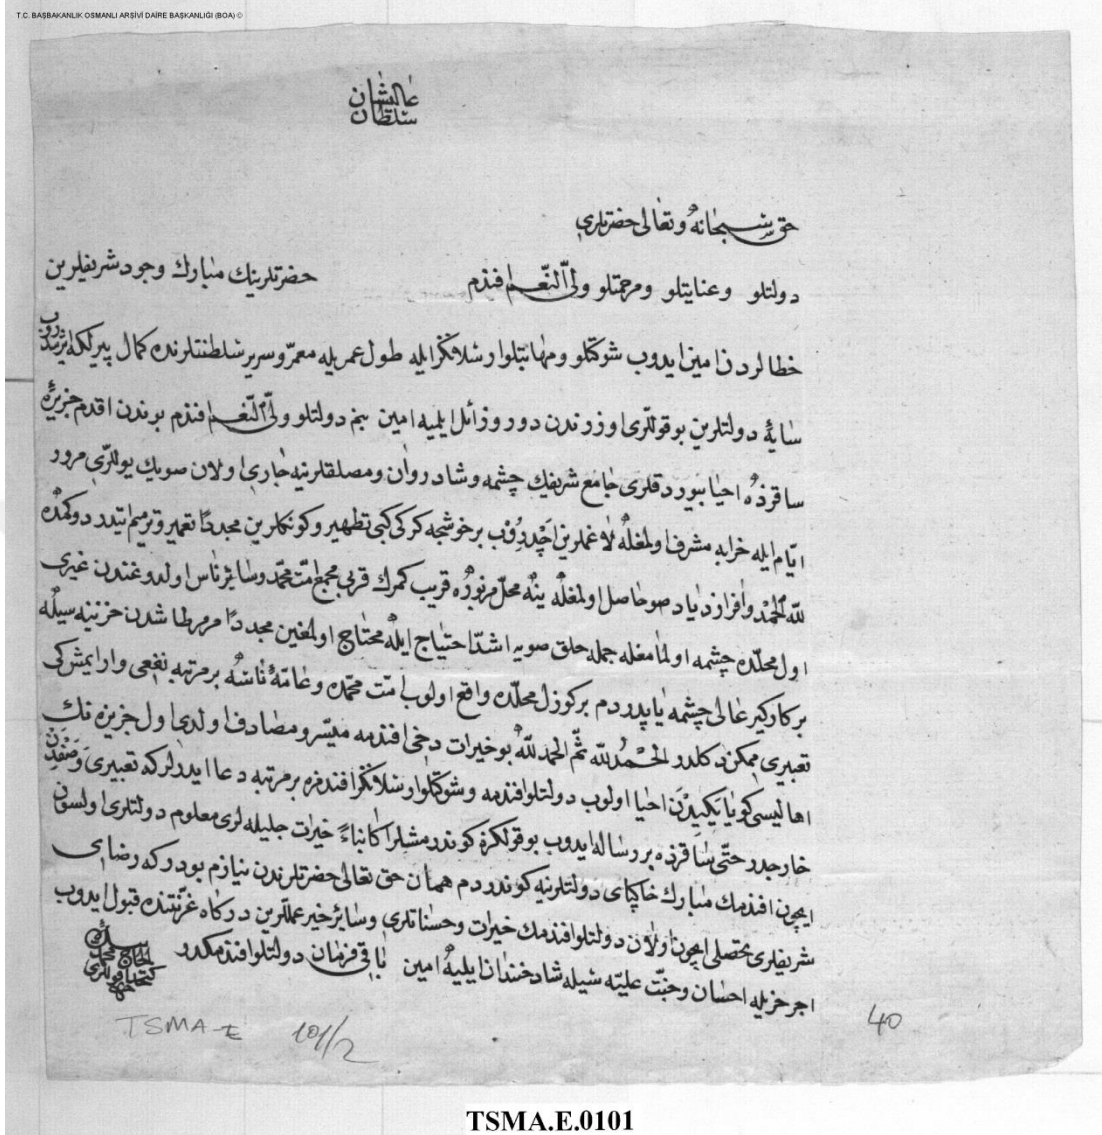 T.C. BAŞBAKANLIK OSMANLI ARŞİVİ DAİRE BAŞKANLIĞI (BOA) ©
عاليشان
سلطان
حق سبحانه و تعالى حضرتلرى
دولتلو و عنايتلو و مرحمتلو ولى النعم افندم حضرتلرينك مبارك وجود شريفلرين
خطالردن امين ايدوب شوكتلو و مهابتلو ارسلانكز ايله طول عمريله معمر و سرير سلطنتلرنده كمال پيرلكه ايرشدروب
سايۀ دولتلرين بو قوللرى اوزرندن دور و زائل ايليه امين بنم دولتلو ولى النعم افندم بوندن اقدم جزيرۀ
ساقزده احيا بيوردقلرى جامع شريفك چشمه و شادروان و مصلقلرينه جارى اولان صويك يوللرى مرور
ايام ايله خرابه مشرف اولمغله لاغملرين اچدروب بر خوشجه كركى كبى تطهير و كونكلرين مجددا تعمير و ترميم اتيدردوكمده
لله الحمد وافر ازدياد صو حاصل اولمغله ينه محل مزبوره قريب كمرك قربى مجمع امت محمد و سائر ناس اولدوغندن غيرى
اول محلده چشمه اولمامغله جمله خلق صويه اشد احتياج ايله محتاج اولمغين مجددا مرمر طاشدن خزينه سيله
بر كاركير عالى چشمه ياپدردم بر كوزل محلده واقع اولوب امت محمده و عامۀ ناسه بر مرتبه نفعى وار ايمش كى
تعبيرى ممكن دكلدر الحمد لله ثم الحمد لله بو خيرات دخى افندمه ميسر و مصادف اولدى اول جزيره نك
اهاليسى كويا يكيدن احيا اولوب دولتلو افندمه و شوكتلو ارسلانكز افندمزه بر مرتبه دعا ايدرلر كه تعبيرى و صفدن
خارجدر حتى ساقزده بر رساله ايدوب بو قولكزه كوندرمشلر اكا بناء خيرات جليله لرى معلوم دولتلرى اولسون
ايچون افندمك مبارك خاكپاى دولتلرينه كوندردم همان حق تعالى حضرتلرندن نيازم بودر كه رضاى
شريفلرى تحصلى ايچون اولان دولتلو افندمك خيرات و حسناتلرى و سائر خير عمللرين دركاه عزتنده قبول ايدوب
اجر جزيله احسان و جنت عليه سيله شاد خندان ايليه امين باقى فرمان دولتلو افندمكدر
بنده
الحاج محمد
كتخدا قوللرى
TSMA-E 101/2
40
TSMA.E.0101